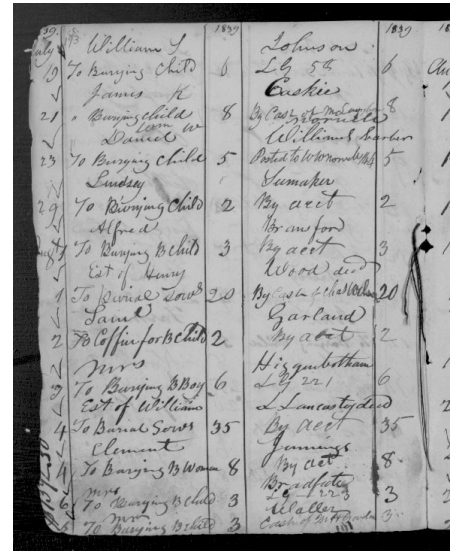 1839 1839
July William S Johnson
19 To Burying Child 6 LG 58 6
James K Caskie
21 " Burying child 8 By Cash of 8
Daniel W William
23 To Burying Child 5 Posted to 5
Lindsey Sumaker
29 To Burying Child 2 By acct 2
Alfred Bransford
To Burying B Child 3 By acct 3
Est of Henry Wood died
1 To Burial Sows 20 By Cash of 20
Saml Garland
2 To Coffin for B Child 2 By acct 2
Mrs Higginbotham
To Burying B Boy 6 LG 221 6
Est of William L Lancaster died
4 To Burial Sows 35 By acct 35
Clement Jennings
4 To Burying B Woman 8 By acct 8
Mrs Bradfute
6 To Burying B Child 3 LG 223 3
Mrs Waller
6 To Burying B child 3 Cash of 3